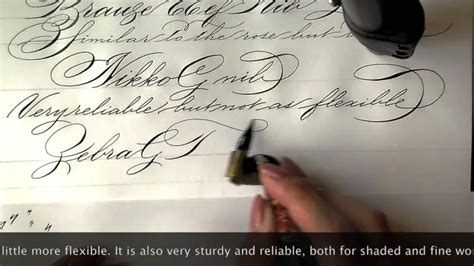 Brauze Eef Nib
Similar to the rose but
Nikko G nib
Very reliable but not as flexible
Zebra G
little more flexible. It is also very sturdy and reliable, both for shaded and fine wo